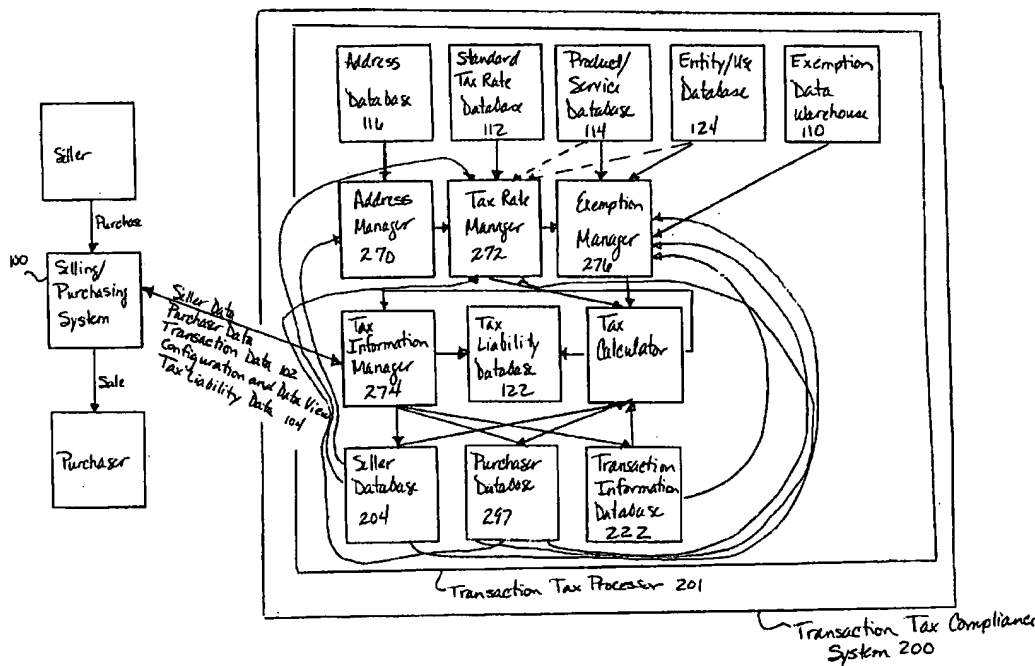 Address
Database
116
Standard
Tax Rate
Database
112
Product/
Service
Database
114
Entity/Use
Database
124
Exemption
Data
Warehouse
110
Seller
Purchase
100
Selling/
Purchasing
System
Sale
Purchaser
Seller Data
Purchaser Data
Transaction Data 102
Configuration and Data View
Tax Liability Data 104
Address
Manager
270
Tax Rate
Manager
272
Exemption
Manager
276
Tax
Information
Manager
274
Tax
Liability
Database
122
Tax
Calculator
Seller
Database
204
Purchaser
Database
297
Transaction
Information
Database
222
Transaction Tax Processor 201
Transaction Tax Compliance
System 200